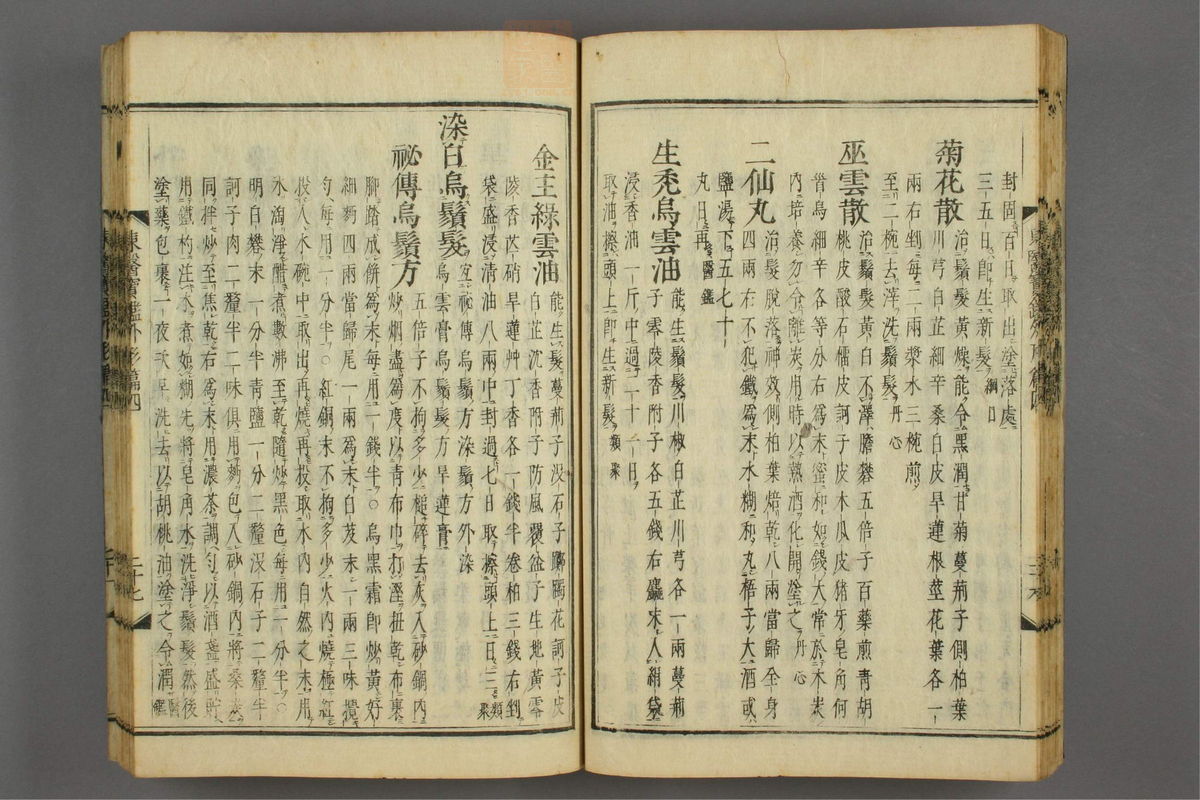 封固百日取出塗落處
三五日卽生新髮 綱目
菊花散 治鬚髮黃燥能令黑潤甘菊蔓荊子側柏葉
川芎白芷細辛桑白皮旱蓮根莖花葉各一
兩右剉每二兩漿水三椀煎
至二椀去滓洗鬚髮 丹心
巫雲散 治鬚髮黃白不澤膽礬五倍子百藥煎青胡
桃皮酸石榴皮訶子皮木瓜皮猪牙皂角何
首烏細辛各等分右爲末蜜和如錢大常於木炭
內培養勿令離炭用時以熱酒化開塗之 丹心
二仙丸 治髮脫落神效側柏葉焙乾八兩當歸全身
四兩右不犯鐵爲末水糊和丸梧子大酒或
鹽湯下五七十
丸日再 醫鑑
生禿烏雲油 能生鬚髮川椒白芷川芎各一兩蔓荊
子零陵香附子各五錢右麤末入絹袋
浸香油一斤中過二十一日
取油擦頭上卽生新髮 類聚
金主綠雲油 能生髮蔓荊子沒石子躑躅花訶子皮
白芷沈香附子防風覆盆子生地黃零
陵香芒硝旱蓮艸丁香各一錢半卷柏三錢右剉
袋盛浸清油八兩中封過七日取擦頭上日三 類聚
染白烏鬚髮 宜祕傳烏鬚方染鬚方外染
烏雲膏烏鬚髮方旱蓮膏
祕傳烏鬚方 五倍子不拘多少槌碎去灰入砂鍋內
炒烟盡爲度以青布巾打溼扭乾布裹
脚踏成餠爲末每用一錢半○烏黑霜卽炒黃好
細麪四兩當歸尾一兩爲末白芨末一兩三味攪
勻每用一分半○紅銅末不拘多少火內燒極紅
投入水碗中取出再燒再投取水內自然之末用
水淘淨醋煮數沸至乾隨炒黑色每用一分半○
明白礬末一分半青鹽一分二釐沒石子二釐半
訶子肉二釐半二味俱用麪包入砂鍋內將桑柴
同拌炒至焦乾右爲末用濃茶調勻以酒盞盛貯
用鐵杓注水煮如糊先將皂角水洗淨鬚髮然後
塗藥包裹一夜次早洗去以胡桃油塗之令潤 醫鑑
東醫寶鑑外形篇四